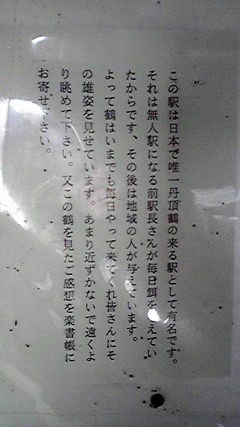 この駅は日本で唯一丹頂鶴の来る駅として有名です。
それは無人駅になる前駅長さんが毎日餌を与えてい
たからです、その後は地域の人が与えています。
よって鶴はいまでも毎日やって来てくれ皆さんにそ
の雄姿を見せています。あまり近ずかないで遠くよ
り眺めて下さい。又この鶴を見たご感想を楽書帳に
お寄せ下さい。